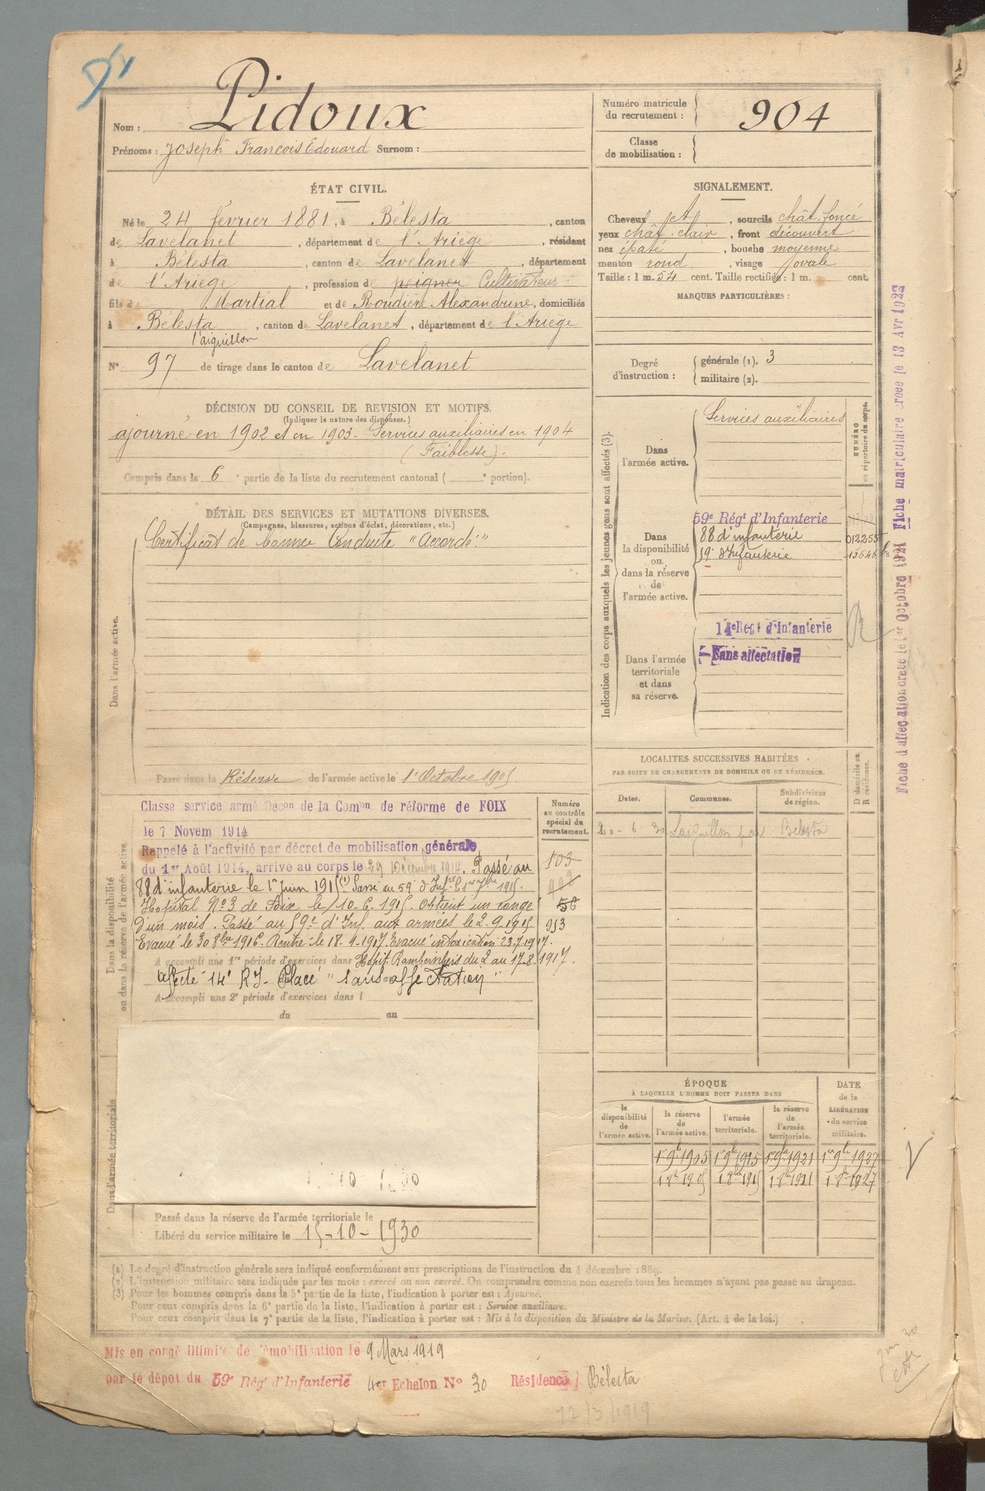 Nom : Pidoux
Prénoms : Joseph François Edouard Surnom :
Numéro matricule du recrutement : 904
Classe de mobilisation :
ÉTAT CIVIL.
Né le 24 février 1881, à Bélesta, canton
de Lavelanet, département de l'Ariège, résidant
à Bélesta, canton de Lavelanet, département
de l'Ariège, profession de peigneur Cultivateur
fils de Martial et de Roudière Alexandrine, domiciliés
à Bélesta, canton de Lavelanet, département de l'Ariège
l'aiguillon
N° 97 de tirage dans le canton de Lavelanet
SIGNALEMENT.
Cheveux jd, sourcils chât. foncé
yeux chât. clair, front découvert
nez épaté, bouche moyenne
menton rond, visage ovale
Taille : 1 m. 54 cent. Taille rectifiée : 1 m. cent.
MARQUES PARTICULIÈRES :
Degré d'instruction : générale (1). 3
militaire (2).
DÉCISION DU CONSEIL DE REVISION ET MOTIFS.
(Indiquer la nature des dispenses.)
ajourné en 1902 et en 1903. Services auxiliaires en 1904
(Faiblesse).
Compris dans la 6e partie de la liste du recrutement cantonal ( e portion).
DÉTAIL DES SERVICES ET MUTATIONS DIVERSES.
(Campagnes, blessures, actions d'éclat, décorations, etc.)
Certificat de bonne Conduite "Accordé"
Dans l'armée active.
Passé dans la Réserve de l'armée active le 1er Octobre 1905
Indication des corps auxquels les jeunes gens sont affectés (3).
NUMÉRO au répertoire du corps.
Dans l'armée active.
Services auxiliaires
Dans la disponibilité ou dans la réserve de l'armée active.
59e Régt d'Infanterie
88 d'infanterie 012255
59e d'Infanterie
Dans l'armée territoriale et dans sa réserve.
14e Régt d'Infanterie
Sans affectation
Fiche d'affectation créée le 1er Octobre 1921 Fiche matriculaire créée le 13 Avr 1922
LOCALITÉS SUCCESSIVES HABITÉES
PAR SUITE DE CHANGEMENTS DE DOMICILE OU DE RÉSIDENCE.
Dates. Communes. Subdivisions de région. D domicile ou R résidence.
Bélesta
Dans la disponibilité ou dans la réserve de l'armée active.
Numéro au contrôle spécial du recrutement.
Classé service armé Décon de la Comon de réforme de FOIX
le 7 Novem 1914
Rappelé à l'activité par décret de mobilisation générale
du 1er Août 1914, arrivé au corps le 29 Décembre 1914. Passé au
88 d'infanterie le 1er juin 1915 (1) Passé au 59e d'Infie le 1er 7bre 1915.
Hopital N° 3 de Foix le 10.6.1915. Obtient un congé
d'un mois. Passé au 59e d'Inf. aux armées le 2.9.1915 953
Evacué le 30 8bre 1916. Rentré le 18.1.1917. Evacué intoxication 23.7.1917.
A accompli une 1re période d'exercices dans Hopit. Rambervillers du 2 au 17.8.1917.
affecté 14e R.I. Placé "Sans affectation"
A accompli une 2e période d'exercices dans l
du au
Dans l'armée territoriale
Passé dans la réserve de l'armée territoriale le
Libéré du service militaire le 15-10-1930
ÉPOQUE
À LAQUELLE L'HOMME DOIT PASSER DANS
la disponibilité de l'armée active. la réserve de l'armée active. l'armée territoriale. la réserve de l'armée territoriale.
DATE de la LIBÉRATION du service militaire.
1 9bre 1905 1 9bre 1915 1 9bre 1921 1er 9bre 1927
1 8bre 1905 1 8bre 1915 1 8bre 1921 1 8bre 1927
(1) Le degré d'instruction générale sera indiqué conformément aux prescriptions de l'instruction du 4 décembre 1889.
(2) L'instruction militaire sera indiquée par les mots : exercé ou non exercé. On comprendra comme non exercés tous les hommes n'ayant pas passé au drapeau.
(3) Pour les hommes compris dans la 5e partie de la liste, l'indication à porter est : Ajourné.
Pour ceux compris dans la 6e partie de la liste, l'indication à porter est : Service auxiliaire.
Pour ceux compris dans la 7e partie de la liste, l'indication à porter est : Mis à la disposition du Ministre de la Marine. (Art. 4 de la loi.)
Mis en congé illimité de démobilisation le 9 Mars 1919
par le dépôt du 59e Régt d'Infanterie 4er Echelon N° 30 Résidence Bélesta
12/3/1919